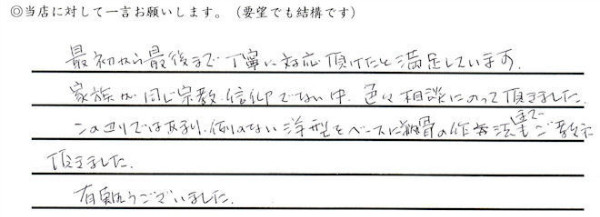 ◎当店に対して一言お願いします。(要望でも結構です)
最初から最後まで丁寧に対応頂けたと満足しています。
家族が同じ宗教・信仰でない中、色々相談にのって頂きました。
この辺りではあまり例のない洋型をベースに納骨の作法までご教示
頂きました。
有難うございました。